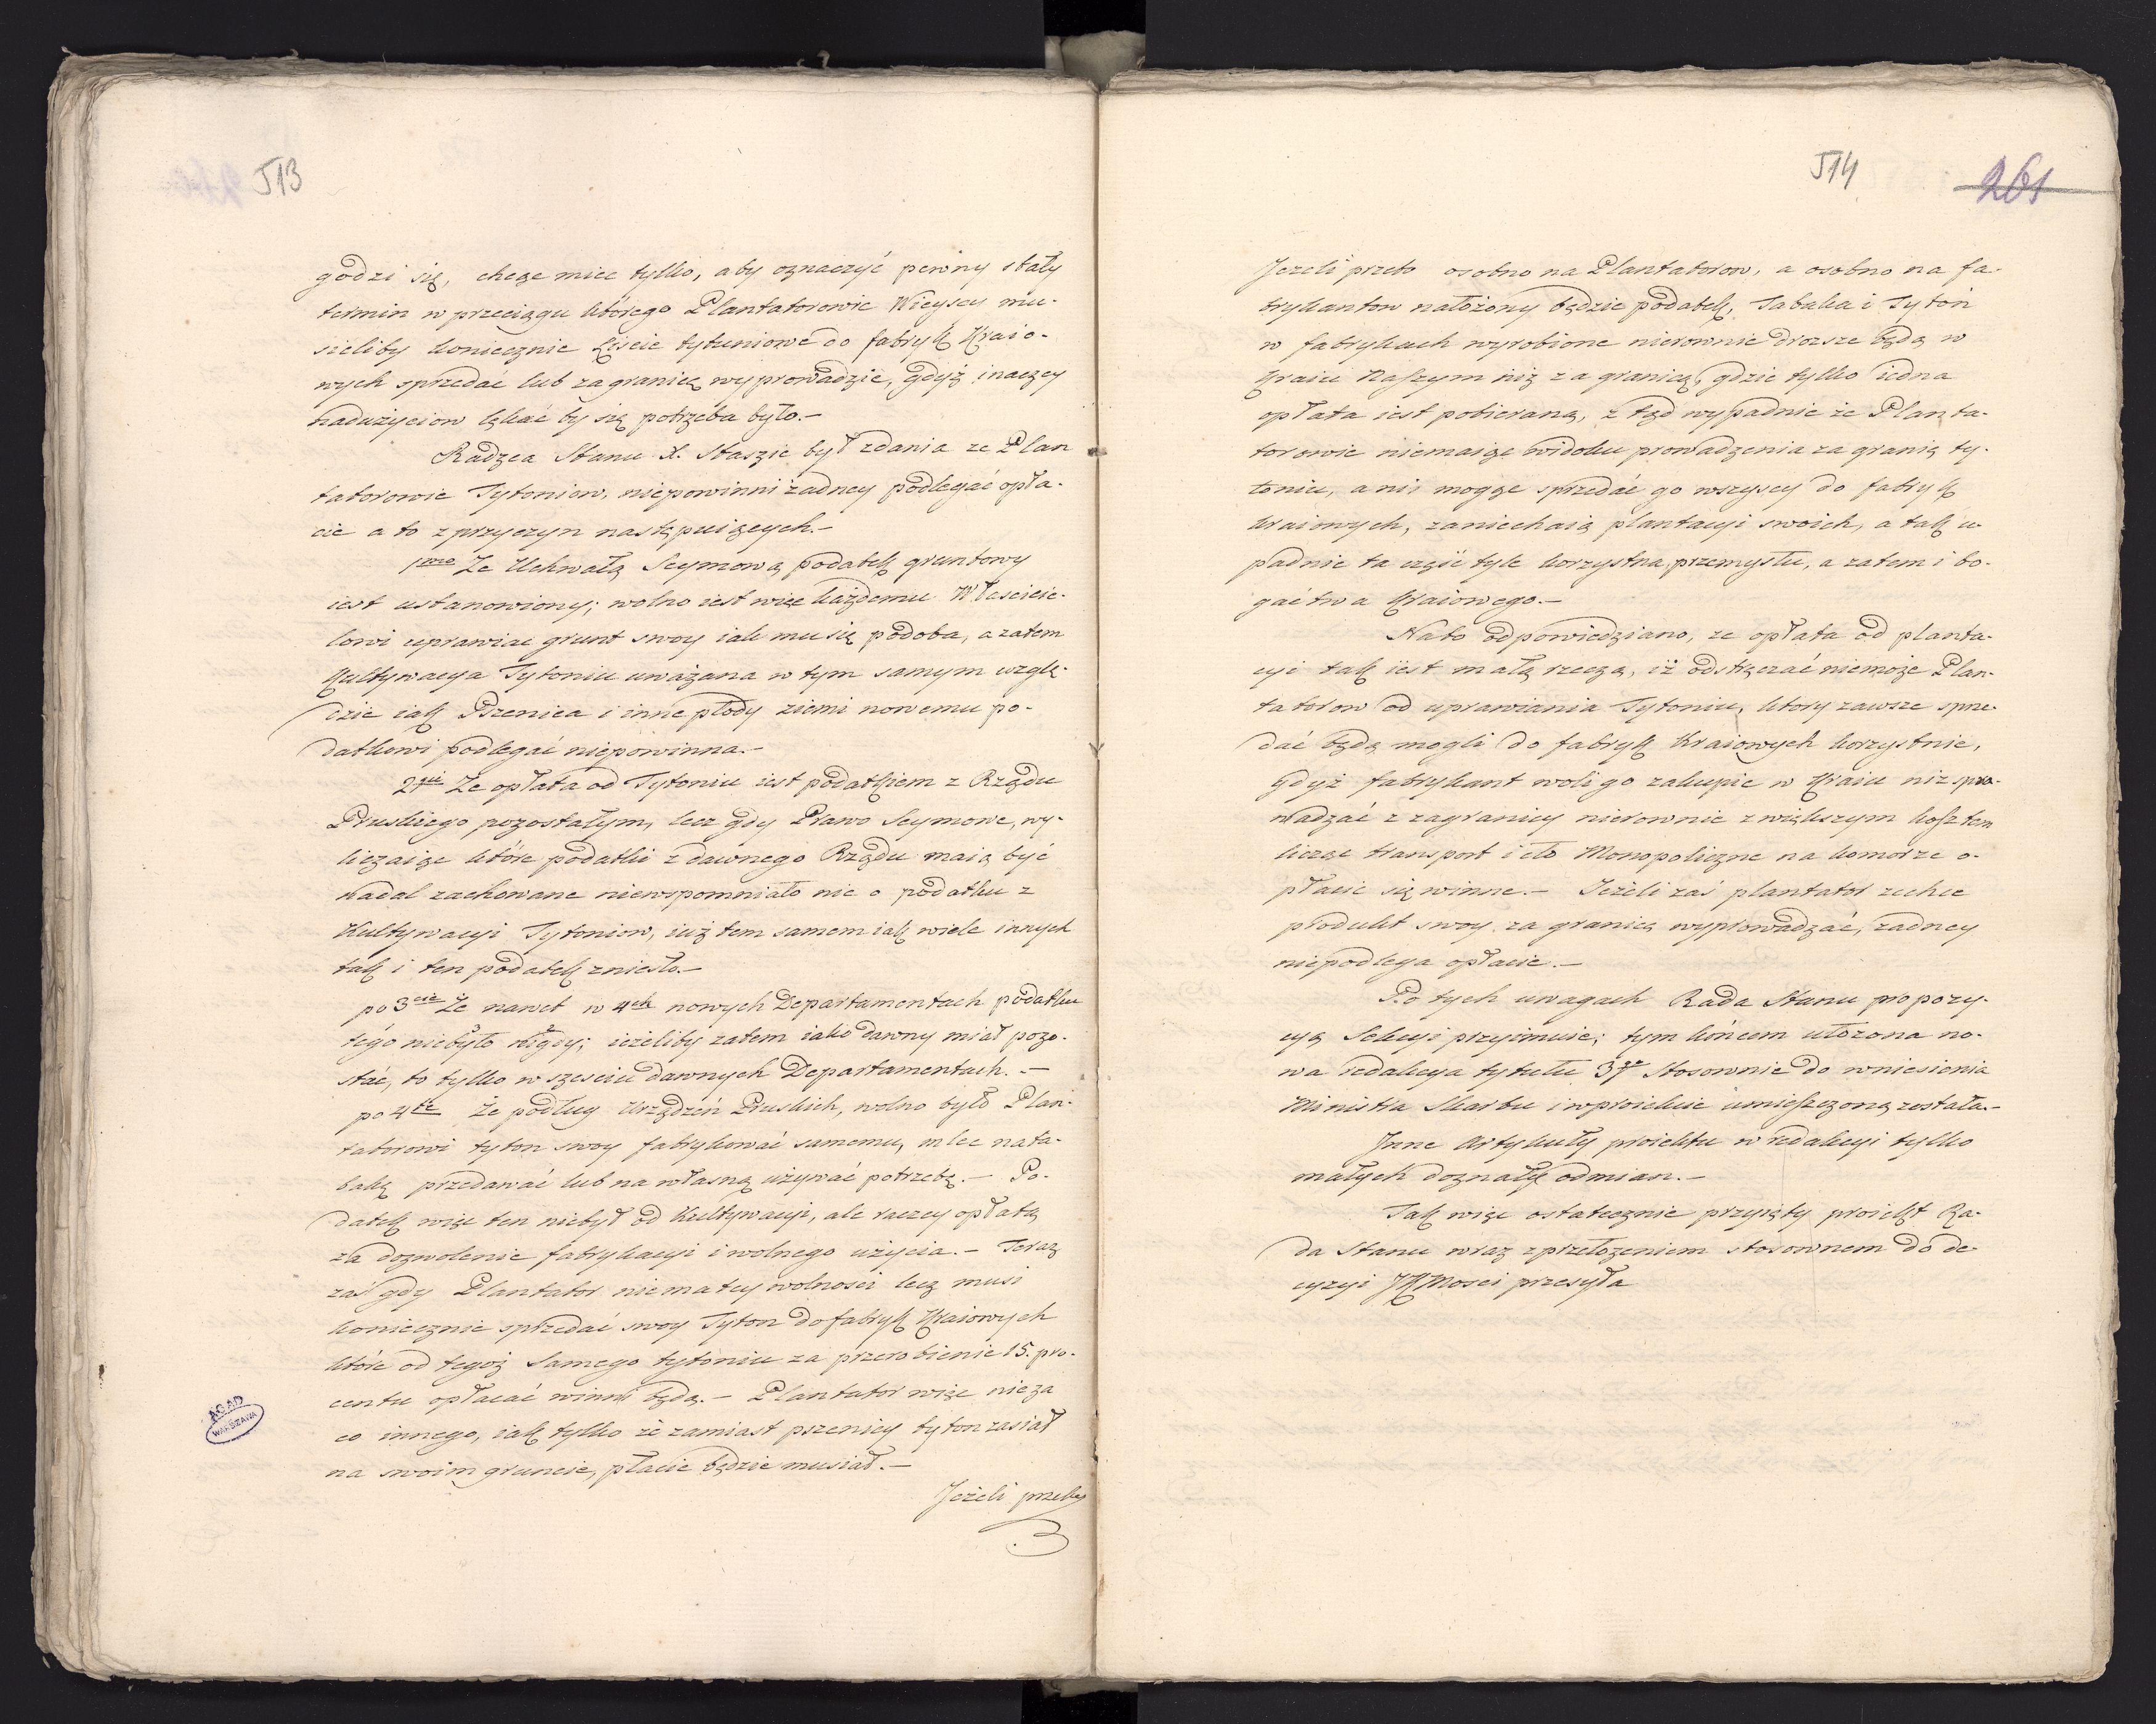 513
godzi się, chcąc miec tylko, aby oznaczyć pewny stały
termin w przeciągu którego Plantatorowie Wieyscy mu-
sieliby koniecznie Liscie tytuniowe do fabryk Kraio-
wych sprzedać lub zagranicę wyprowadzic, gdyż inaczey
nadużyciow lękać by się potrzeba było.-
Radzca Stanu X. Staszic był zdania ze Plan
tatorowie Tytoniow, niepowinni żadney podlegać opła-
cie a to z przyczyn następuiących.-
1mo Ze Uchwałą Seymową podatek gruntowy
iest ustanowiony; wolno iest więc każdemu Włascicie-
lowi uprawiac grunt swoy iak mu się podoba, a zatem
Kultywacya Tytoniu uważana w tym samym wzglę-
dzie iak Pszenica i inne płody ziemi nowemu po-
datkowi podlegać niepowinna.-
2gie Ze opłata od Tytoniu iest podatkiem z Rządu
Pruskiego pozostałym, lecz gdy Prawo Seymowe, wy-
liczaiąc które podatki z dawnego Rządu maią być
nadal zachowane niewspomniało nic o podatku z
Kultywacyi Tytoniow, iuż tem samem iak wiele innych
tak i ten podatek zniesło.-
po 3cie Ze nawet w 4ch nowych Departamentach podatku
tego niebyło nigdy; ieżeliby zatem iako dawny miał pozo-
stać, to tylko w szesciu dawnych Departamentach.-
po 4te Że podług Urządzeń Pruskich, wolno było Plan-
tatorowi tyton swoy fabrykować samemu, mlec na ta-
bakę przedawać lub na własną używać potrzebę.- Po-
datek więc ten niebył od Kultywacyi, ale raczey opłatą
za dozwolenie fabrykacyi i wolnego użycia.- Teraz
zaś gdy Plantator niema tey wolności lecz musi
koniecznie sprzedać swoy Tyton do fabryk Kraiowych
które od tegoż samego tytoniu za przerobienie 15. pro-
centu opłacać winni będą.- Plantator więc nie za
co innego, iak tylko że zamiast pszenicy tyton zasiał
na swoim gruncie, płacic będzie musiał.-
Jeżeli przeto
AGAD
WARSZAWA
514
261
Jezeli przeto osobno na Plantatorow, a osobno na fa-
brykantow nałożony będzie podatek, Tabaka i Tytoń
w fabrykach wyrobione nierównie drozsze będą w
Kraiu Naszym niż za granicą, gdzie tylko iedna
opłata iest pobieraną, z tąd wypadnie że Planta-
torowie niemaiąc widoku prowadzenia za granią ty-
toniu, ani mogąc sprzedać go wszyscy do fabryk
kraiowych, zaniechaią plantacyi swoich, a tak u-
padnie ta część tyle korzystna przemysłu, a zatem i bo-
gactwa Kraiowego.-
Na to odpowiedziano, ze opłata od planta-
cyi tak iest małą rzeczą, iż odstręczać niemoże Plan-
tatorow od uprawiania Tytoniu, ktory zawsze sprze-
dać będą mogli do fabryk Kraiowych korzystnie,
Gdyż fabrykant woli go zakupic w Kraiu niz spro-
wadzać z zagranicy nierownie z większym kosztem
licząc transport i cło Monopoliczne na komorze o-
płacic się winne.- Jeżeli zaś plantator zechce
produkt swoy za granicę wyprowadzać, zadney
niepodlega opłacie.-
Po tych uwagach Rada Stanu propozy-
cyą Sekcyi przyimuie; tym końcem ułożona no-
wa redakcya tytułu 3go Stosownie do wniesienia
Ministra Skarbu i w proiekcie umieszczoną została.-
Jnne Artykuły proiektu w redakcyi tylko
małych doznały odmian.-
Tak więc ostatecznie przyięty proiekt Ra-
da Stanu wraz z przełożeniem stosownem do de-
cyzyi JKMosci przesyła